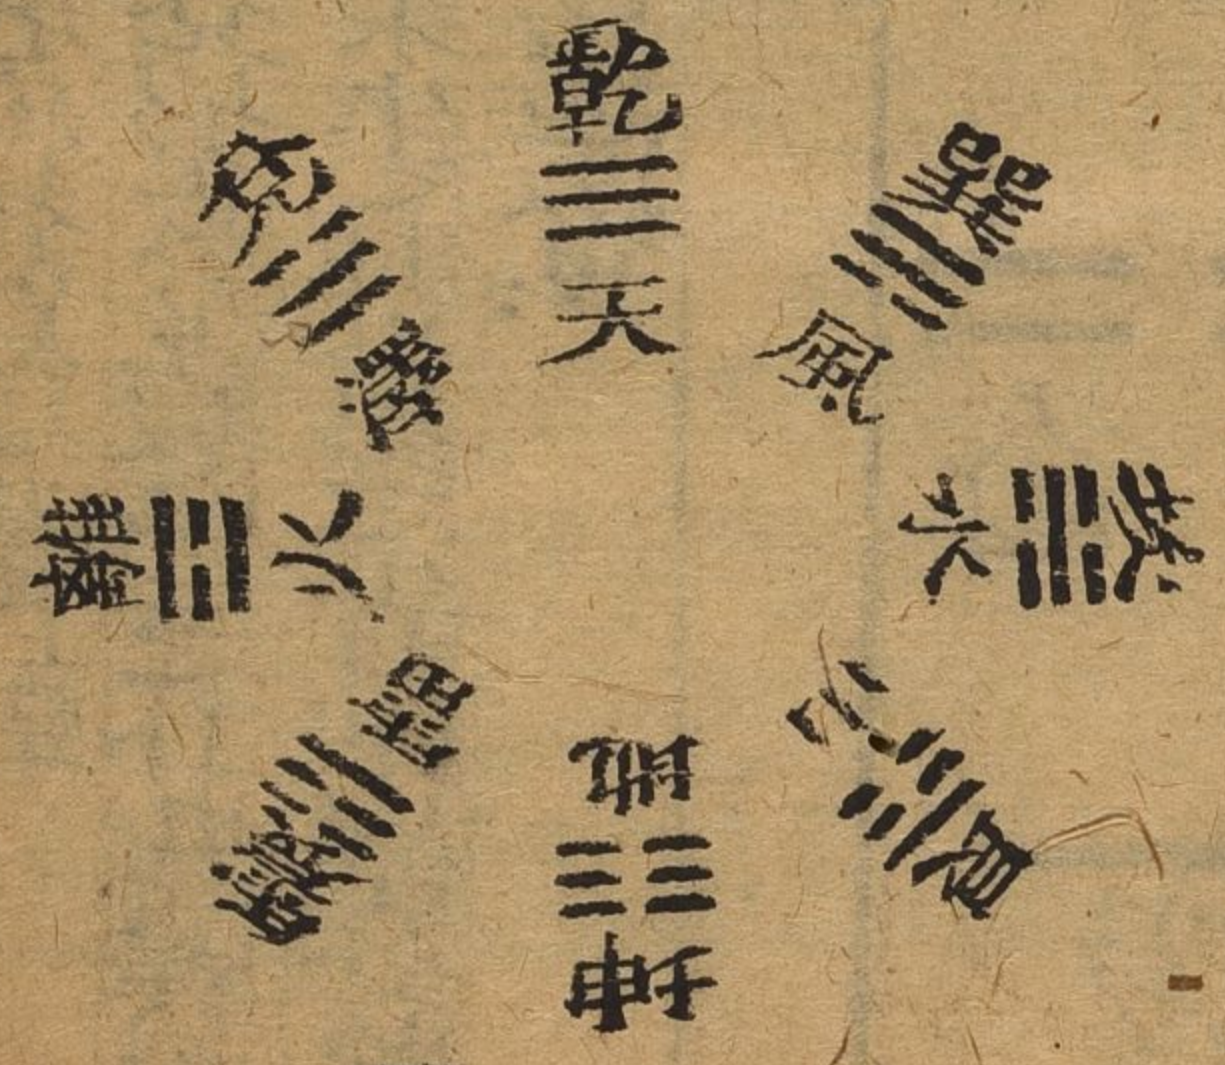 乾
天
巽
風
坎
水
艮
山
坤
地
震
雷
離
火
兌
澤